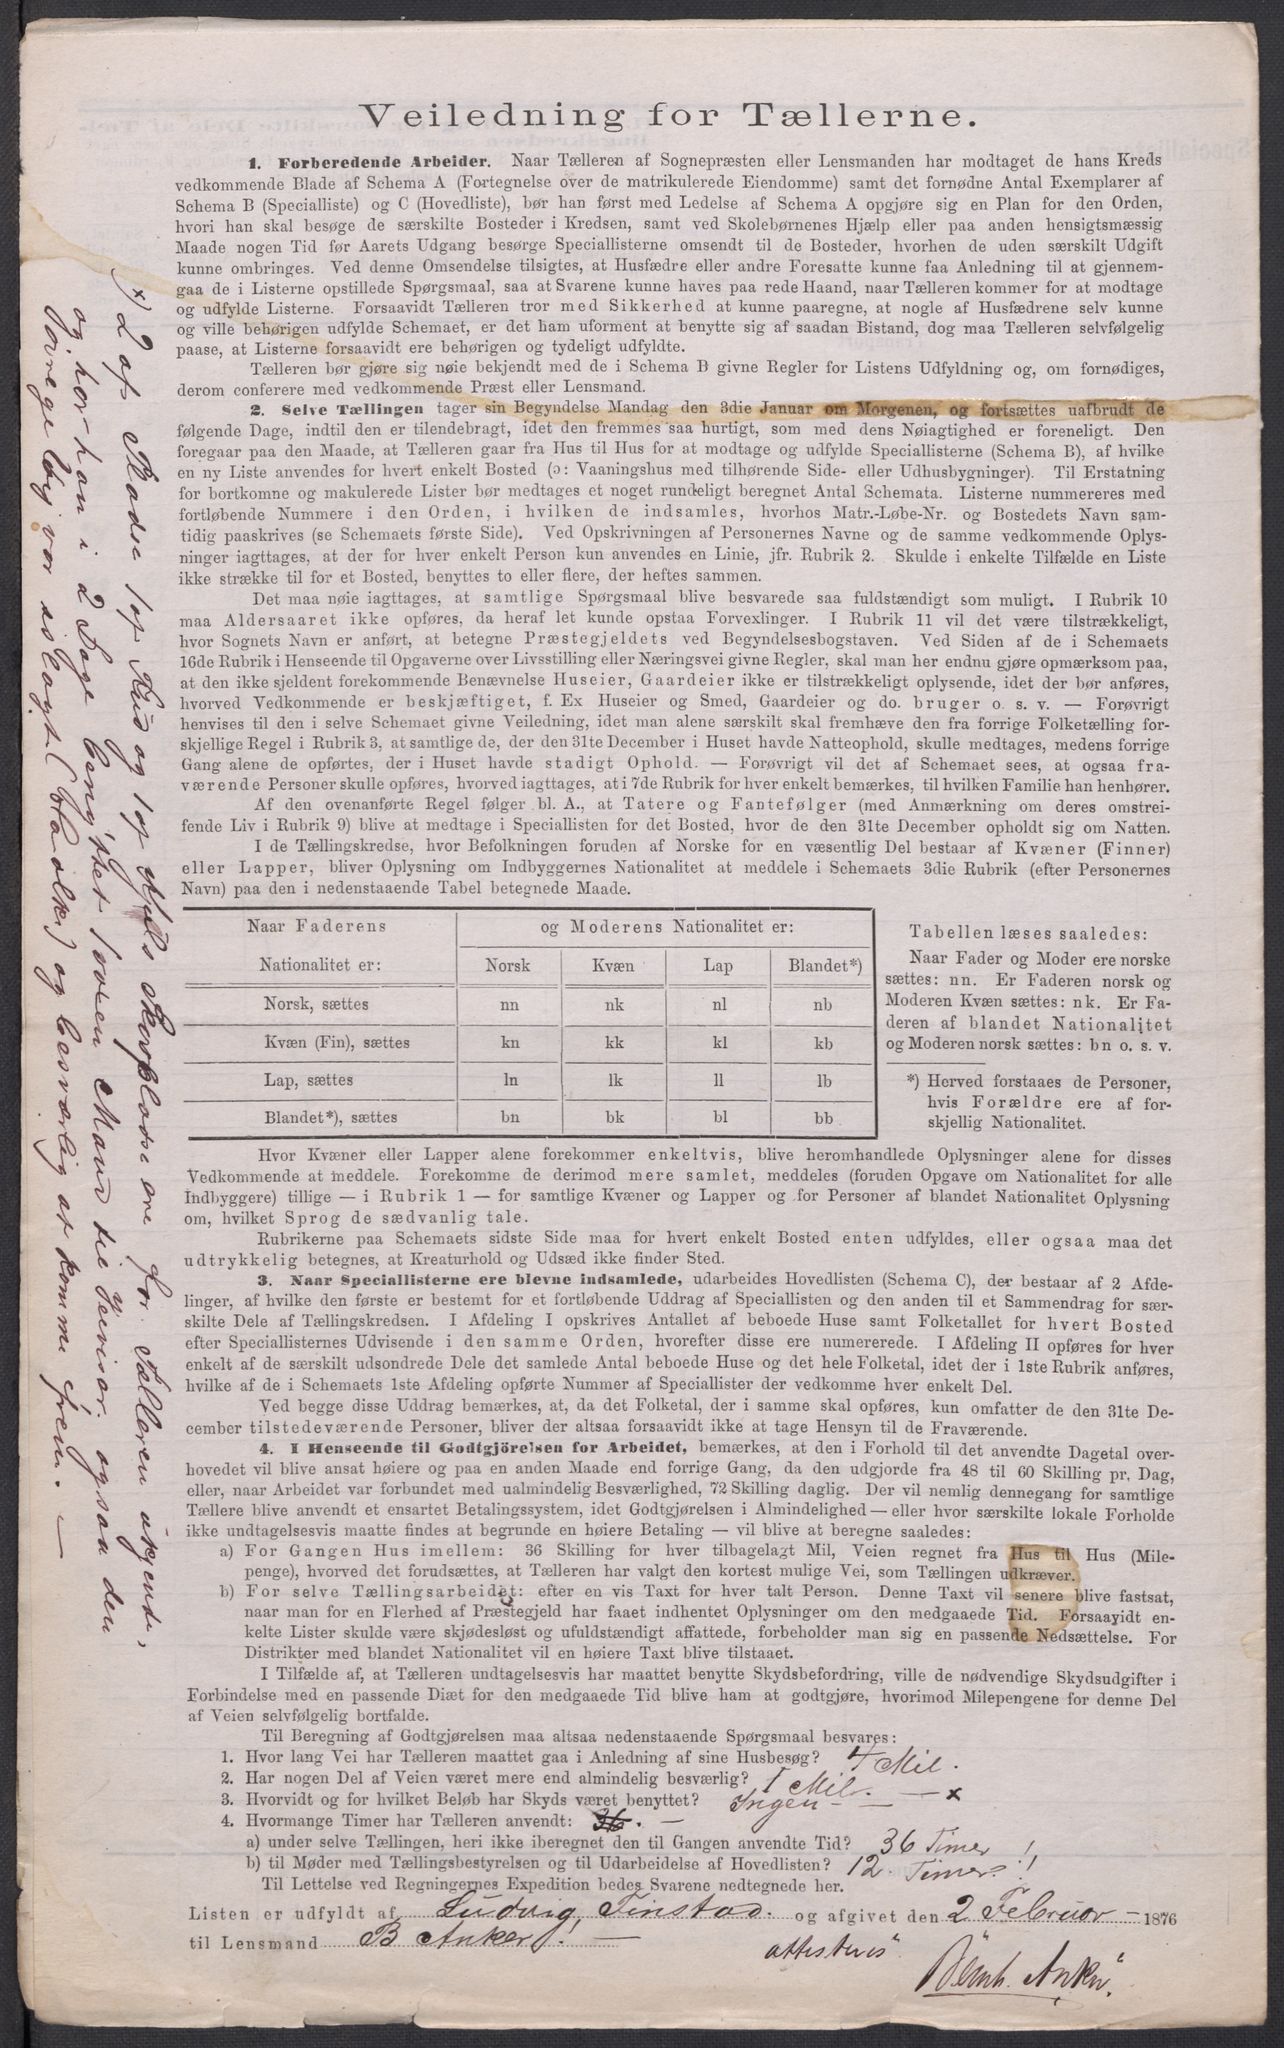 Veiledning for Tællerne.
1. Forberedende Arbeider. Naar Tælleren af Sognepræsten eller Lensmanden har modtaget de hans Kreds
vedkommende Blade af Schema A (Fortegnelse over de matrikulerede Eiendomme) samt det fornødne Antal Exemplarer af
Schema B (Specialliste) og C (Hovedliste), bør han først med Ledelse af Schema A opgjøre sig en Plan for den Orden,
hvori han skal besøge de særskilte Bosteder i Kredsen, samt ved Skolebørnenes Hjælp eller paa anden hensigtsmæssig
Maade nogen Tid før Aarets Udgang besørge Speciallisterne omsendt til de Bosteder, hvorhen de uden særskilt Udgift
kunne ombringes. Ved denne Omsendelse tilsigtes, at Husfædre eller andre Foresatte kunne faa Anledning til at gjennem-
gaa de i Listerne opstillede Spørgsmaal, saa at Svarene kunne haves paa rede Haand, naar Tælleren kommer for at modtage
og udfylde Listerne. Forsaavidt Tælleren tror med Sikkerhed at kunne paaregne, at nogle af Husfædrene selv kunne
og ville behørigen udfylde Schemaet, er det ham uforment at benytte sig af saadan Bistand, dog maa Tælleren selvfølgelig
paase, at Listerne forsaavidt ere behørigen og tydeligt udfyldte.
Tælleren bør gjøre sig nøie bekjendt med de i Schema B givne Regler for Listens Udfyldning og, om fornødiges,
derom conferere med vedkommende Præst eller Lensmand.
2. Selve Tællingen tager sin Begyndelse Mandag den 3die Januar om Morgenen, og fortsættes uafbrudt de
følgende Dage, indtil den er tilendebragt, idet den fremmes saa hurtigt, som med dens Nøiagtighed er foreneligt. Den
foregaar paa den Maade, at Tælleren gaar fra Hus til Hus for at modtage og udfylde Speciallisterne (Schema B), af hvilke
en ny Liste anvendes for hvert enkelt Bosted (ɔ: Vaaningshus med tilhørende Side- eller Udhusbygninger). Til Erstatning
for bortkomne og makulerede Lister bør medtages et noget rundeligt beregnet Antal Schemata. Listerne nummereres med
fortløbende Nummere i den Orden, i hvilken de indsamles, hvorhos Matr.-Løbe-Nr. og Bostedets Navn sam-
tidig paaskrives (se Schemaets første Side). Ved Opskrivningen af Personernes Navne og de samme vedkommende Oplys-
ninger iagttages, at der for hver enkelt Person kun anvendes en Linie, jfr. Rubrik 2. Skulde i enkelte Tilfælde en Liste
ikke strække til for et Bosted, benyttes to eller flere, der heftes sammen.
Det maa nøie iagttages, at samtlige Spørgsmaal blive besvarede saa fuldstændigt som muligt. I Rubrik 10
maa Aldersaaret ikke opføres, da heraf let kunde opstaa Forvexlinger. I Rubrik 11 vil det være tilstrækkeligt,
hvor Sognets Navn er anført, at betegne Præstegjeldets ved Begyndelsesbogstaven. Ved Siden af de i Schemaets
16de Rubrik i Henseende til Opgaverne over Livsstilling eller Næringsvei givne Regler, skal man her endnu gjøre opmærksom paa,
at den ikke sjeldent forekommende Benævnelse Huseier, Gaardeier ikke er tilstrækkeligt oplysende, idet der bør anføres,
hvorved Vedkommende er beskjæftiget, f. Ex Huseier og Smed, Gaardeier og do. bruger o. s. v. — Forøvrigt
henvises til den i selve Schemaet givne Veiledning, idet man alene særskilt skal fremhæve den fra forrige Folketælling for-
skjellige Regel i Rubrik 3, at samtlige de, der den 31te December i Huset havde Natteophold, skulle medtages, medens forrige
Gang alene de opførtes, der i Huset havde stadigt Ophold. — Forøvrigt vil det af Schemaet sees, at ogsaa fra-
værende Personer skulle opføres, hvorved iagttages, at i 7de Rubrik for hver enkelt bemærkes, til hvilken Familie han henhører.
Af den ovenanførte Regel følger bl. A., at Tatere og Fantefølger (med Anmærkning om deres omstrei-
fende Liv i Rubrik 9) blive at medtage i Speciallisten for det Bosted, hvor de den 31te December opholdt sig om Natten.
I de Tællingskredse, hvor Befolkningen foruden af Norske for en væsentlig Del bestaar af Kvæner (Finner)
eller Lapper, bliver Oplysning om Indbyggernes Nationalitet at meddele i Schemaets 3die Rubrik (efter Personernes
Navn) paa den i nedenstaaende Tabel betegnede Maade.
Naar Faderens og Moderens Nationalitet er:
Nationalitet er: Norsk Kvæn Lap Blandet*)
Norsk, sættes nn nk nl nb
Kvæn (Fin), sættes kn kk kl kb
Lap, sættes ln lk ll lb
Blandet*), sættes bn bk bl bb
Tabellen læses saaledes:
Naar Fader og Moder ere norske
sættes: nn. Er Faderen norsk og
Moderen Kvæn sættes: nk. Er Fa-
deren af blandet Nationalitet
og Moderen norsk sættes: bn o. s. v.
*) Herved forstaaes de Personer,
hvis Forældre ere af for-
skjellig Nationalitet.
Hvor Kvæner eller Lapper alene forekommer enkeltvis, blive heromhandlede Oplysninger alene for disses
Vedkommende at meddele. Forekomme de derimod mere samlet, meddeles (foruden Opgave om Nationalitet for alle
Indbyggere) tillige — i Rubrik 1 — for samtlige Kvæner og Lapper og for Personer af blandet Nationalitet Oplysning
om, hvilket Sprog de sædvanlig tale.
Rubrikerne paa Schemaets sidste Side maa for hvert enkelt Bosted enten udfyldes, eller ogsaa maa det
udtrykkelig betegnes, at Kreaturhold og Udsæd ikke finder Sted.
3. Naar Speciallisterne ere blevne indsamlede, udarbeides Hovedlisten (Schema C), der bestaar af 2 Afde-
linger, af hvilke den første er bestemt for et fortløbende Uddrag af Speciallisten og den anden til et Sammendrag for sær-
skilte Dele af Tællingskredsen. I Afdeling I opskrives Antallet af beboede Huse samt Folketallet for hvert Bosted
efter Speciallisternes Udvisende i den samme Orden, hvorefter disse ere numererede. I Afdeling II opføres for hver
enkelt af de særskilt udsondrede Dele det samlede Antal beboede Huse og det hele Folketal, idet der i 1ste Rubrik anføres,
hvilke af de i Schemaets 1ste Afdeling opførte Nummer af Speciallister der vedkomme hver enkelt Del.
Ved begge disse Uddrag bemærkes, at, da det Folketal, der i samme skal opføres, kun omfatter de den 31te De-
cember tilstedeværende Personer, bliver der altsaa forsaavidt ikke at tage Hensyn til de Fraværende.
4. I Henseende til Godtgjörelsen for Arbeidet, bemærkes, at den i Forhold til det anvendte Dagetal over-
hovedet vil blive ansat høiere og paa en anden Maade end forrige Gang, da den udgjorde fra 48 til 60 Skilling pr. Dag,
eller, naar Arbeidet var forbundet med ualmindelig Besværlighed, 72 Skilling daglig. Der vil nemlig dennegang for samtlige
Tællere blive anvendt et ensartet Betalingssystem, idet Godtgjørelsen i Almindelighed — eller hvor særskilte lokale Forholde
ikke undtagelsesvis maatte findes at begrunde en høiere Betaling — vil blive at beregne saaledes:
a) For Gangen Hus imellem: 36 Skilling for hver tilbagelagt Mil, Veien regnet fra Hus til Hus (Mile-
penge), hvorved det forudsættes, at Tælleren har valgt den kortest mulige Vei, som Tællingen udkræver.
b) For selve Tællingsarbeidet: efter en vis Taxt for hver talt Person. Denne Taxt vil senere blive fastsat,
naar man for en Flerhed af Præstegjeld har faaet indhentet Oplysninger om den medgaaede Tid. Forsaavidt en-
kelte Lister skulde være skjødesløst og ufuldstændigt affattede, forbeholder man sig en passende Nedsættelse. For
Distrikter med blandet Nationalitet vil en høiere Taxt blive tilstaaet.
I Tilfælde af, at Tælleren undtagelsesvis har maattet benytte Skydsbefordring, ville de nødvendige Skydsudgifter i
Forbindelse med en passende Diæt for den medgaaede Tid blive ham at godtgjøre, hvorimod Milepengene for denne Del
af Veien selvfølgelig bortfalde.
Til Beregning af Godtgjørelsen maa altsaa nedenstaaende Spørgsmaal besvares:
1. Hvor lang Vei har Tælleren maattet gaa i Anledning af sine Husbesøg? 4 Mil.
2. Har nogen Del af Veien været mere end almindelig besværlig? 1 Mil. — x
3. Hvorvidt og for hvilket Beløb har Skyds været benyttet? Ingen —
4. Hvormange Timer har Tælleren anvendt: 36. —
a) under selve Tællingen, heri ikke iberegnet den til Gangen anvendte Tid? 36 Timer!
b) til Møder med Tællingsbestyrelsen og til Udarbeidelse af Hovedlisten? 12 Timer!!
Til Lettelse ved Regningernes Expedition bedes Svarene nedtegnede her.
Listen er udfyldt af Ludvig Finstad. og afgivet den 2 Februar — 1876
til Lensmand B Anker. —
attesteres
Bernh. Anker.
x) 2 af Pladse 1 af Rud og 1 af Skovpladse ere for Tælleren ukjendt,
og hor han i 2 Dage benyttet 1 voxen Mand til Veiviser; ogsaa den
Veie var og besværlig at komme frem. —